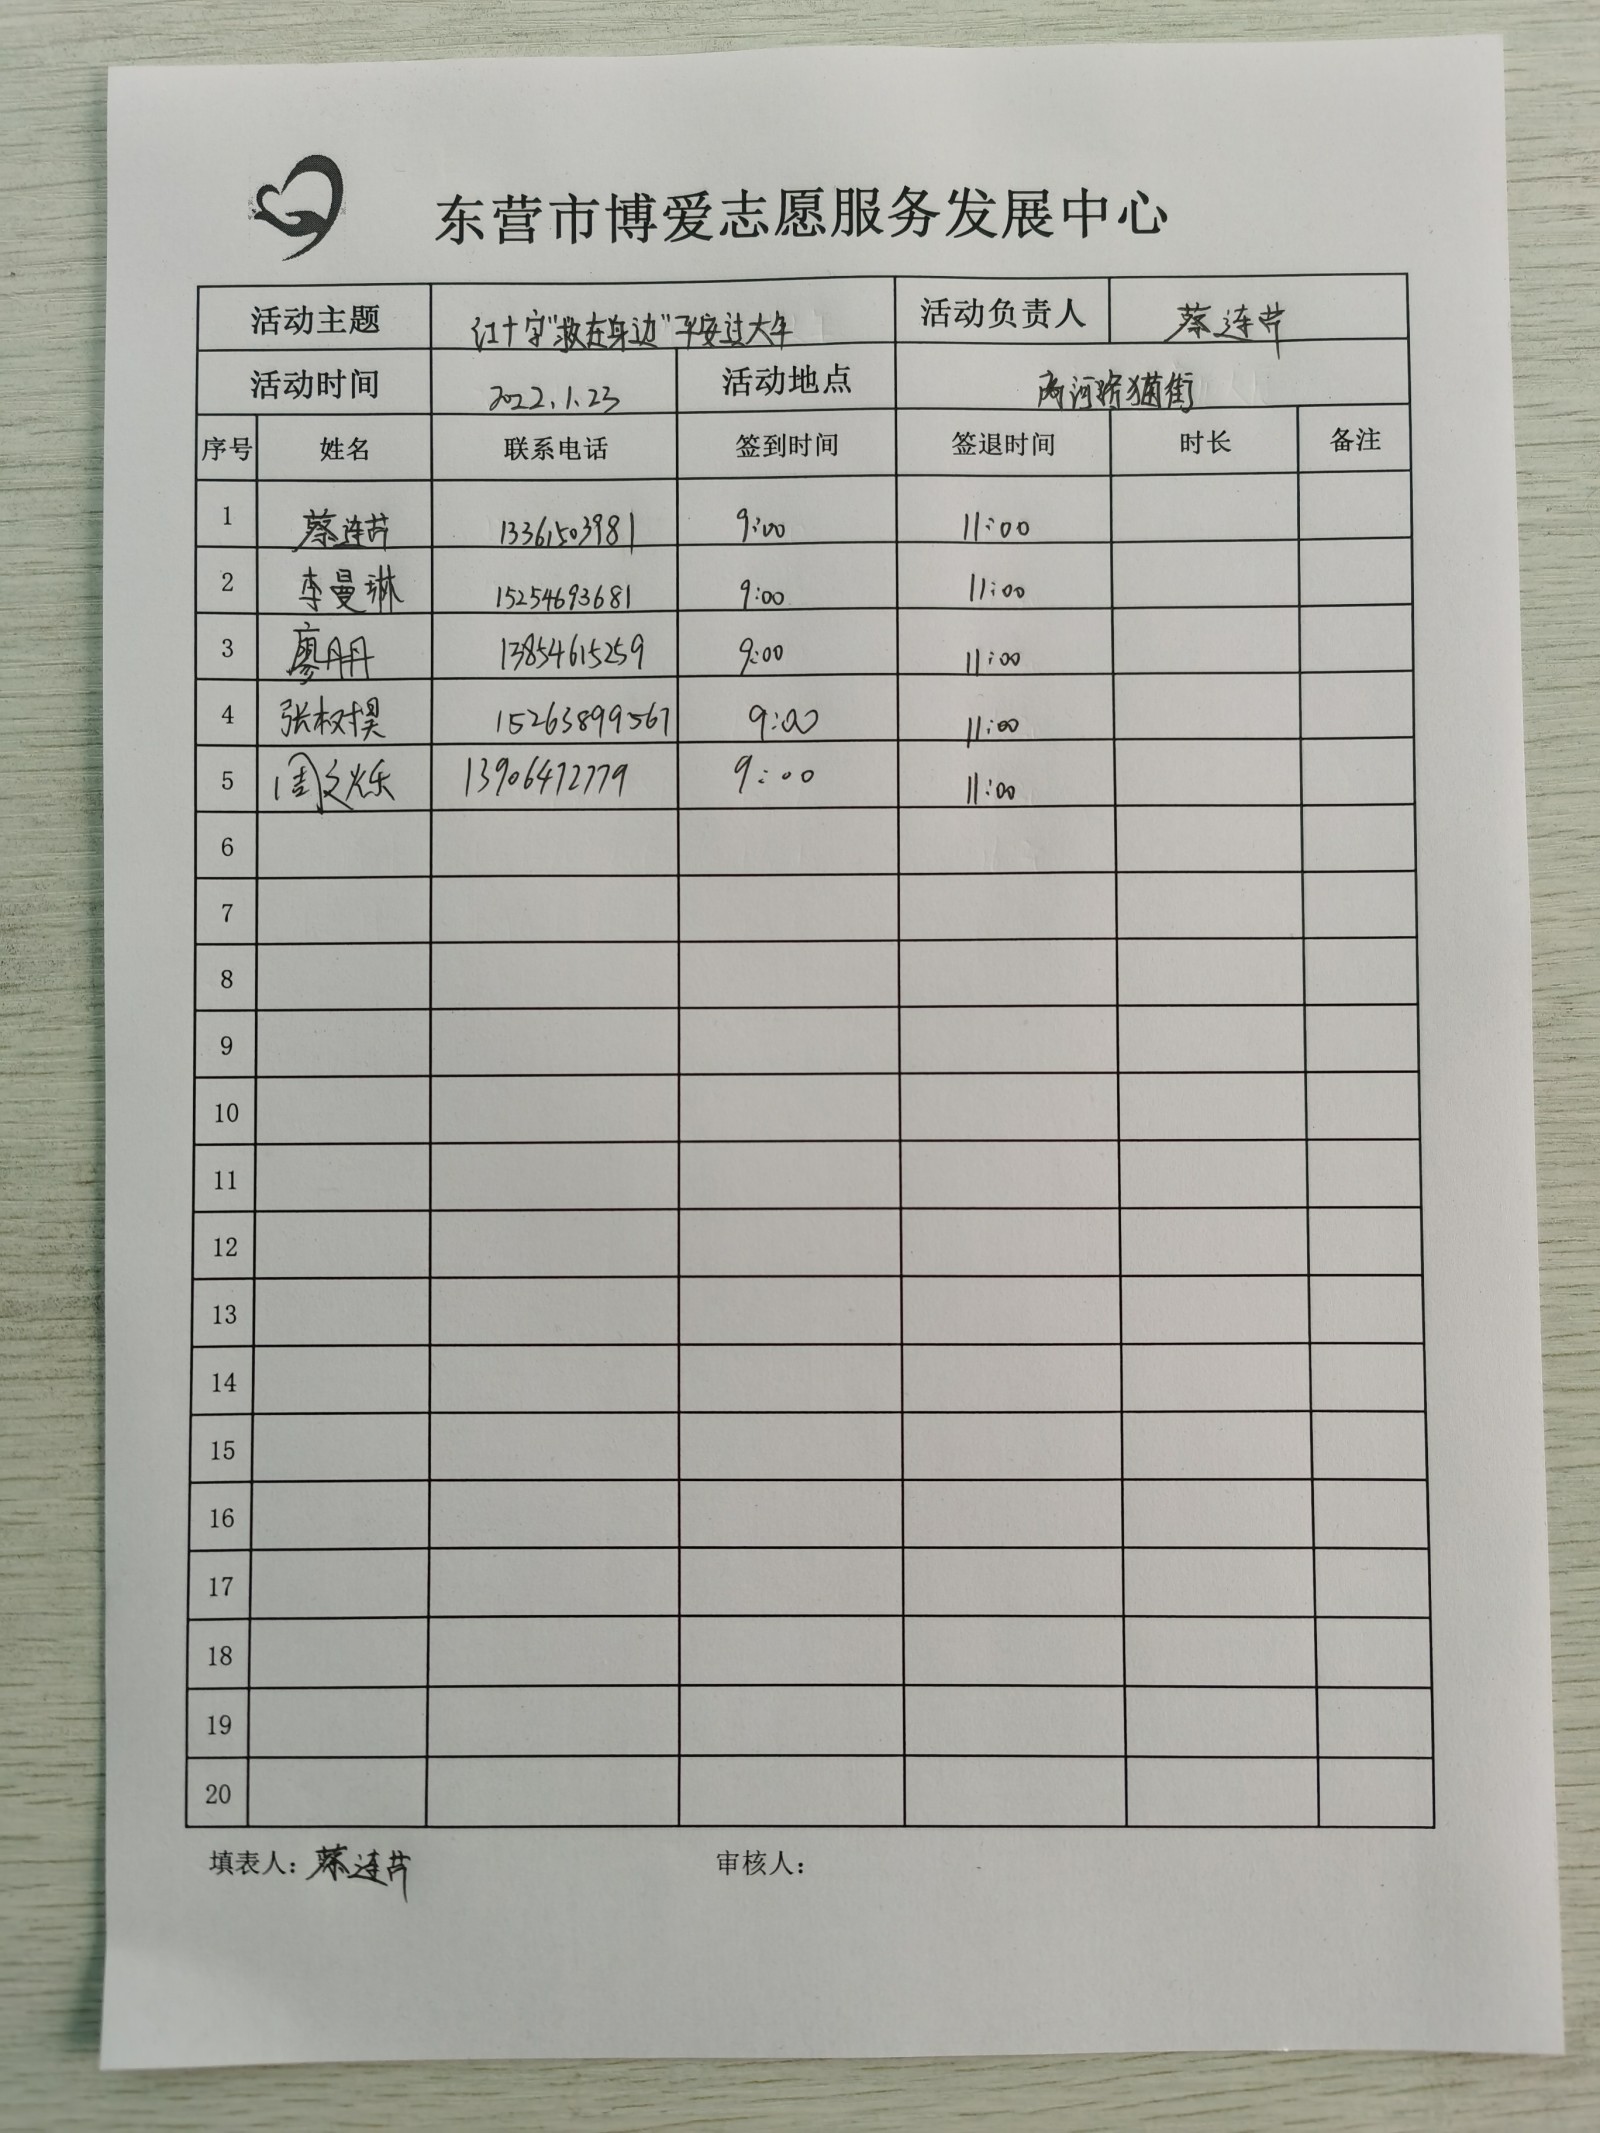 东营市博爱志愿服务发展中心
活动主题 红十字"救在身边"平安过大年 活动负责人 蔡连芹
活动时间 2022.1.23 活动地点 街
序号 姓名 联系电话 签到时间 签退时间 时长 备注
1 蔡连芹 13361503981 9:00 11:00
2 李曼琳 15254693681 9:00 11:00
3 廖丹丹 13854615259 9:00 11:00
4 张 15263899567 9:00 11:00
5 周文烁 13906472779 9:00 11:00
6
7
8
9
10
11
12
13
14
15
16
17
18
19
20
填表人：蔡连芹 审核人：